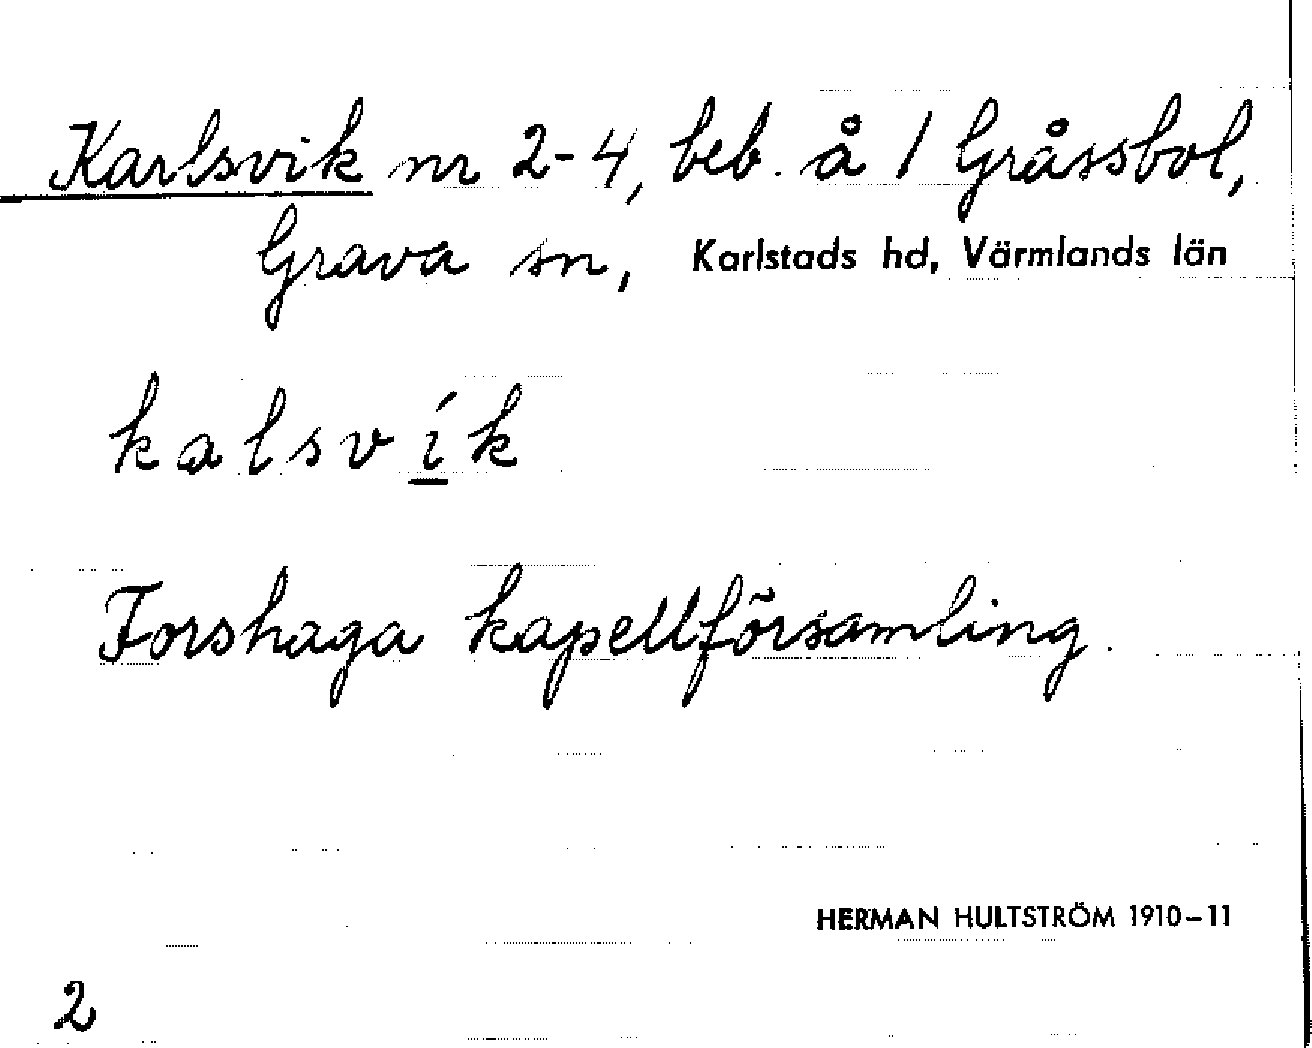 Karlsvik nr 2-4, beb. å / Gråssbol,
Grava sn, Karlstads hd, Värmlands län
kalsvík
Forshaga kapellförsamling.
HERMAN HULTSTRÖM 1910-11
2